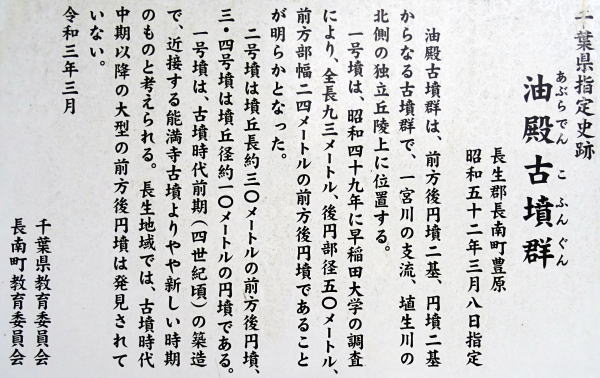 千葉県指定史跡
油殿古墳群
あぶらでん こ ふんぐん
長生郡長南町豊原
昭和五十二年三月八日指定
油殿古墳群は、前方後円墳二基、円墳二基
からなる古墳群で、一宮川の支流、埴生川の
北側の独立丘陵上に位置する。
一号墳は、昭和四十九年に早稲田大学の調査
により、全長九三メートル、後円部径五〇メートル、
前方部幅二四メートルの前方後円墳であること
が明らかとなった。
二号墳は墳丘長約三〇メートルの前方後円墳、
三・四号墳は墳丘径約一〇メートルの円墳である。
一号墳は、古墳時代前期（四世紀頃）の築造
で、近接する能満寺古墳よりやや新しい時期
のものと考えられる。長生地域では、古墳時代
中期以降の大型の前方後円墳は発見されて
いない。
令和三年三月
千葉県教育委員会
長南町教育委員会